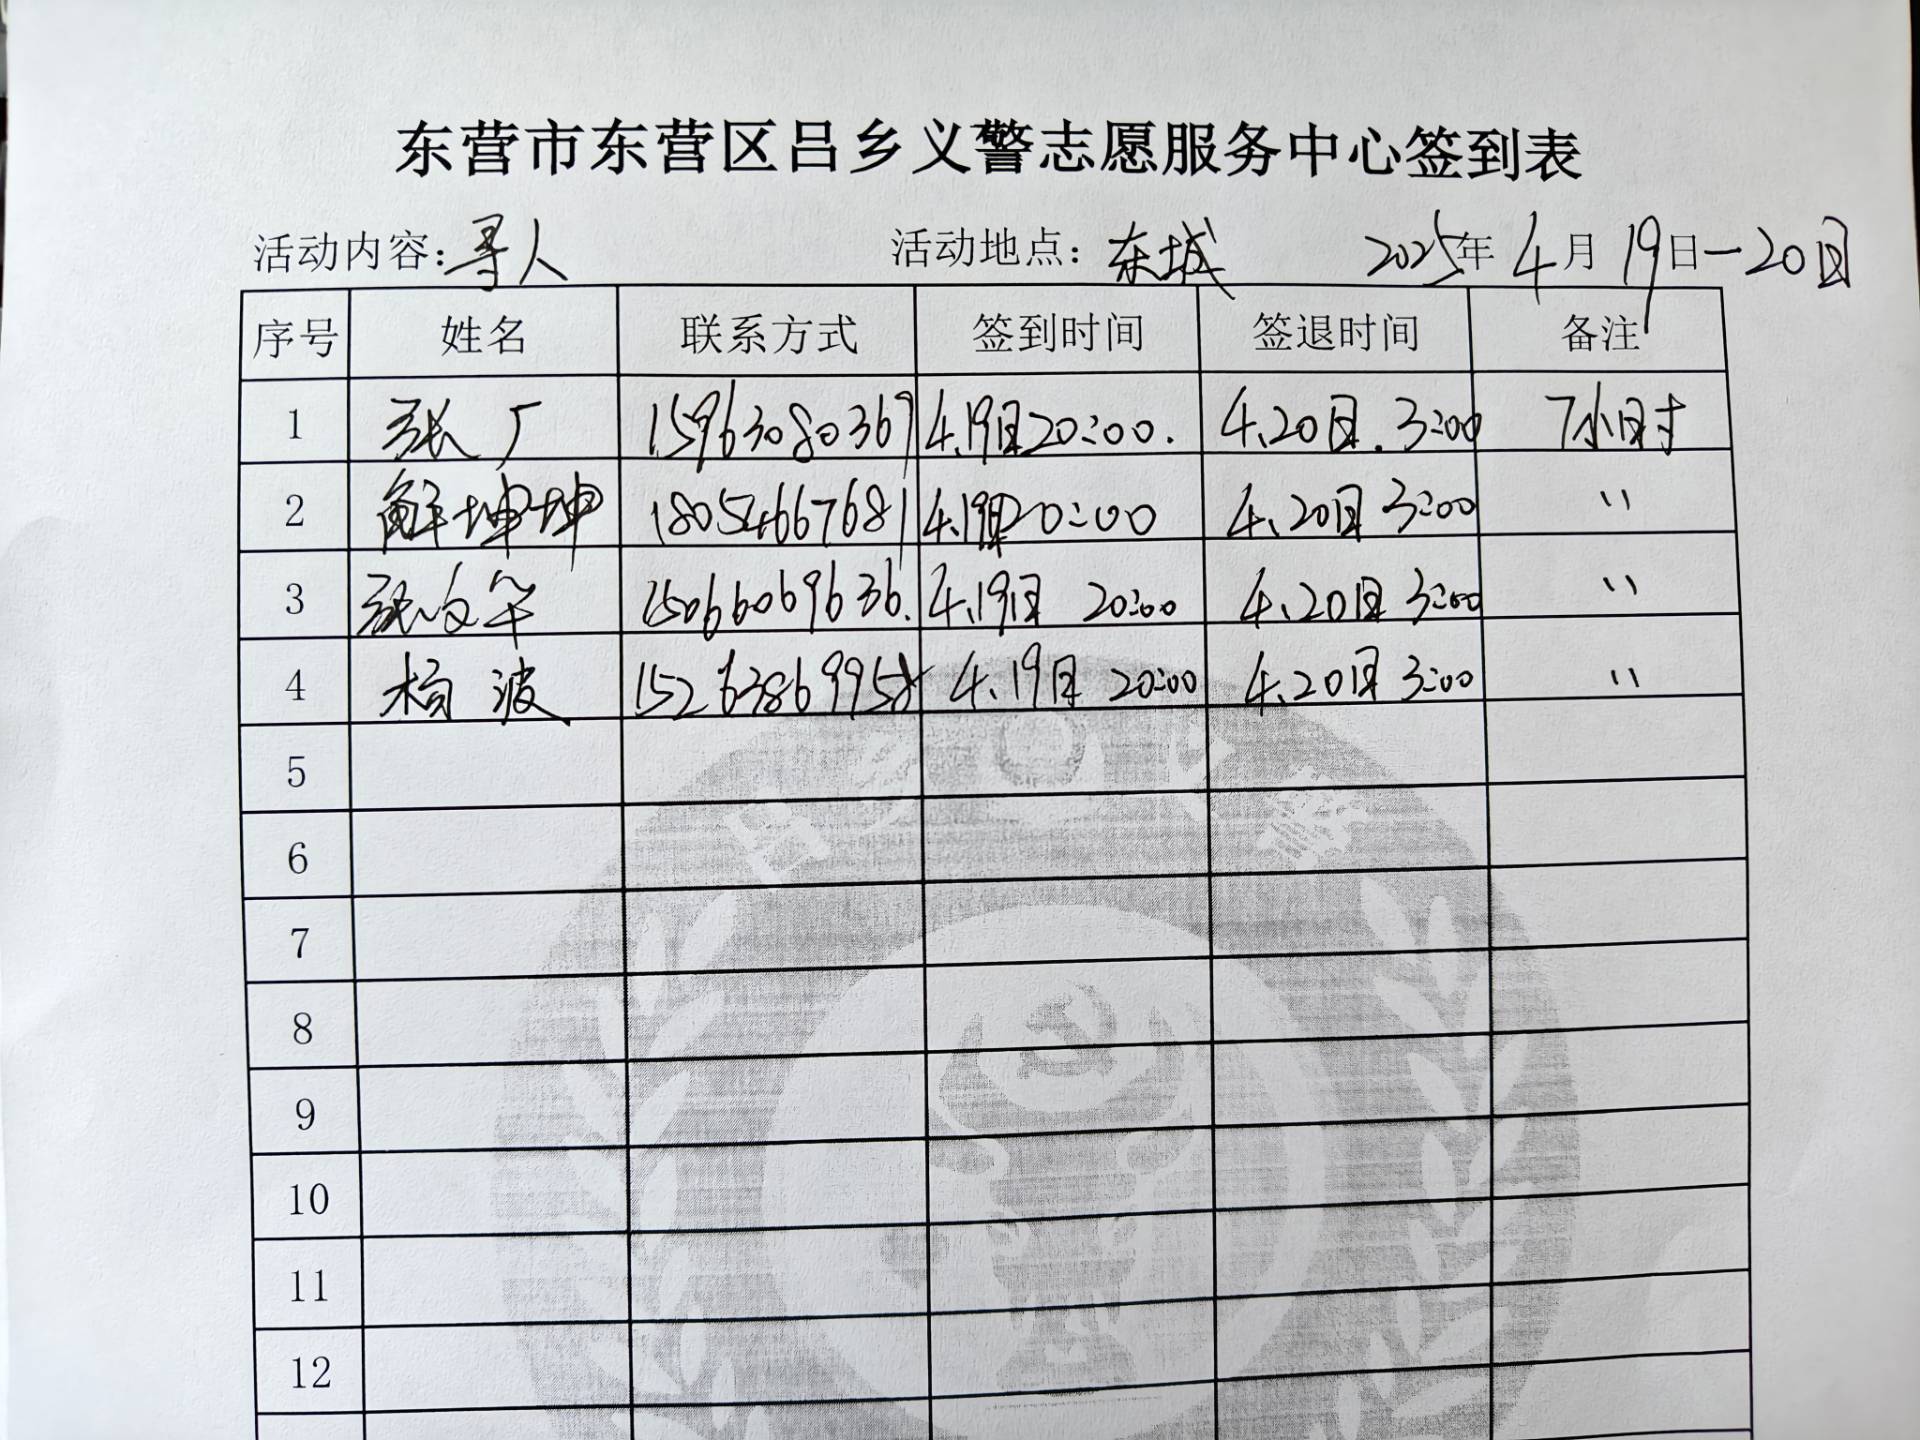 东营市东营区吕乡义警志愿服务中心签到表
活动内容：寻人 活动地点：东城 2025年4月19日—20日
序号 姓名 联系方式 签到时间 签退时间 备注
1 张广 15963080367 4.19日20:00. 4.20日.3:00 7小时
2 解坤坤 18054667681 4.19日20:00 4.20日3:00 〃
3 张文华 15066069636. 4.19日 20:00 4.20日 3:00 〃
4 杨波 4.19日 20:00 4.20日 3:00 〃
5
6
7
8
9
10
11
12